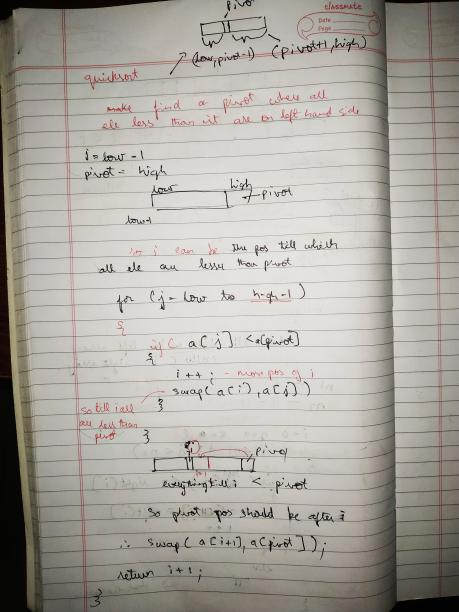 pivot
classmate
Date
Page
(low, pivot-1) (pivot+1, high)
quicksort
find a pivot where all
ele less than ist are on left hand side
i = low - 1
pivot = high
low high
pivot
low-1
so i can be the pos till which
all ele are lesser than pivot
for (j = low to high-1)
{
if ( a[j] < a[pivot]
{
i++; - move pos of i
swap( a[i], a[j])
}
so till i all
are less than
pivot
}
pivot
everything till i < pivot
so pivot pos should be after i
∴ swap( a[i+1], a[pivot]);
return i+1;
}